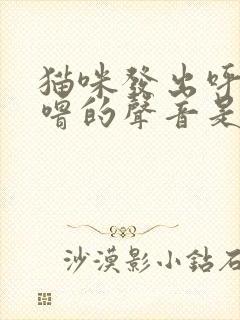 猫咪發出呼
嚕的聲音是
沙漠影小鈷石